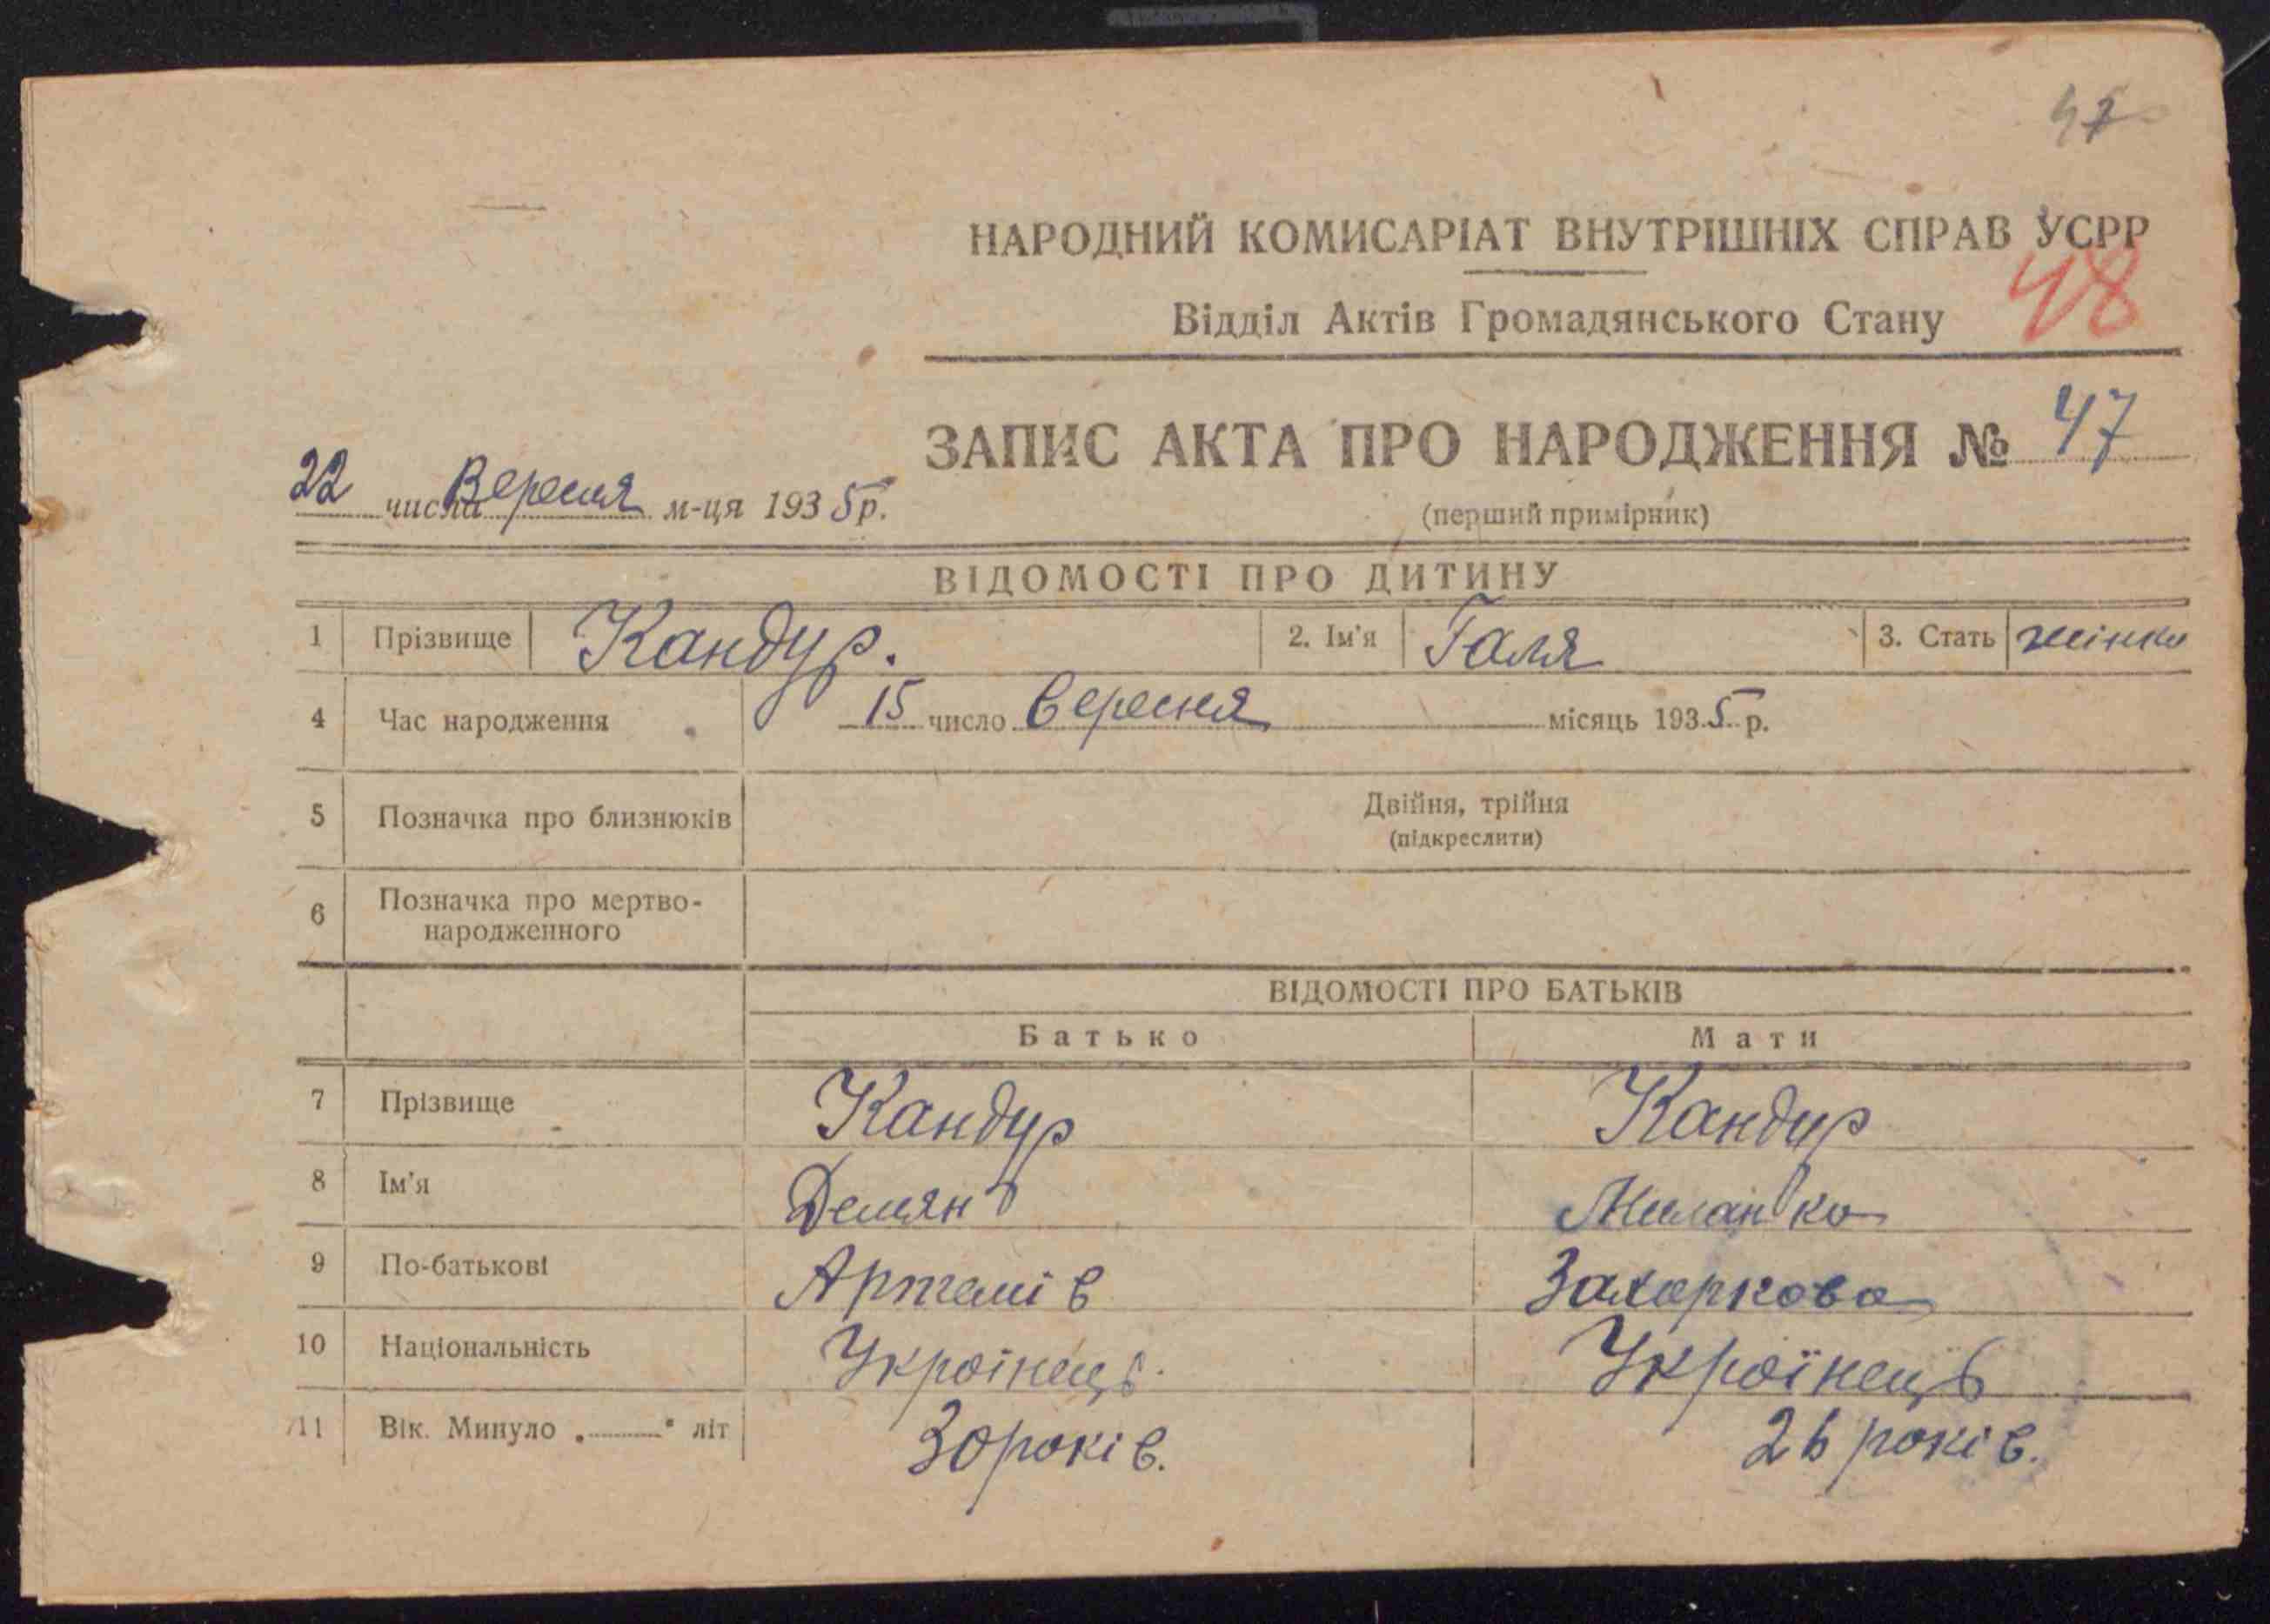 47
НАРОДНИЙ КОМИСАРІАТ ВНУТРІШНІХ СПРАВ УСРР
48
Відділ Актів Громадянського Стану
ЗАПИС АКТА ПРО НАРОДЖЕННЯ № 47
22 числа Вересня м-ця 1935 р.
(перший примірник)
ВІДОМОСТІ ПРО ДИТИНУ
1 Прізвище Кандур. 2. Ім'я Галя 3. Стать жінка
4 Час народження 15 число Вересня місяць 1935 р.
5 Позначка про близнюків Двійня, трійня
(підкреслити)
6 Позначка про мертво-
народженного
ВІДОМОСТІ ПРО БАТЬКІВ
Батько Мати
7 Прізвище Кандур Кандур
8 Ім'я Демян Миланка
9 По-батькові Артемів Захаркова
10 Національність Українець Українець
11 Вік. Минуло „ " літ 30 років. 26 років.